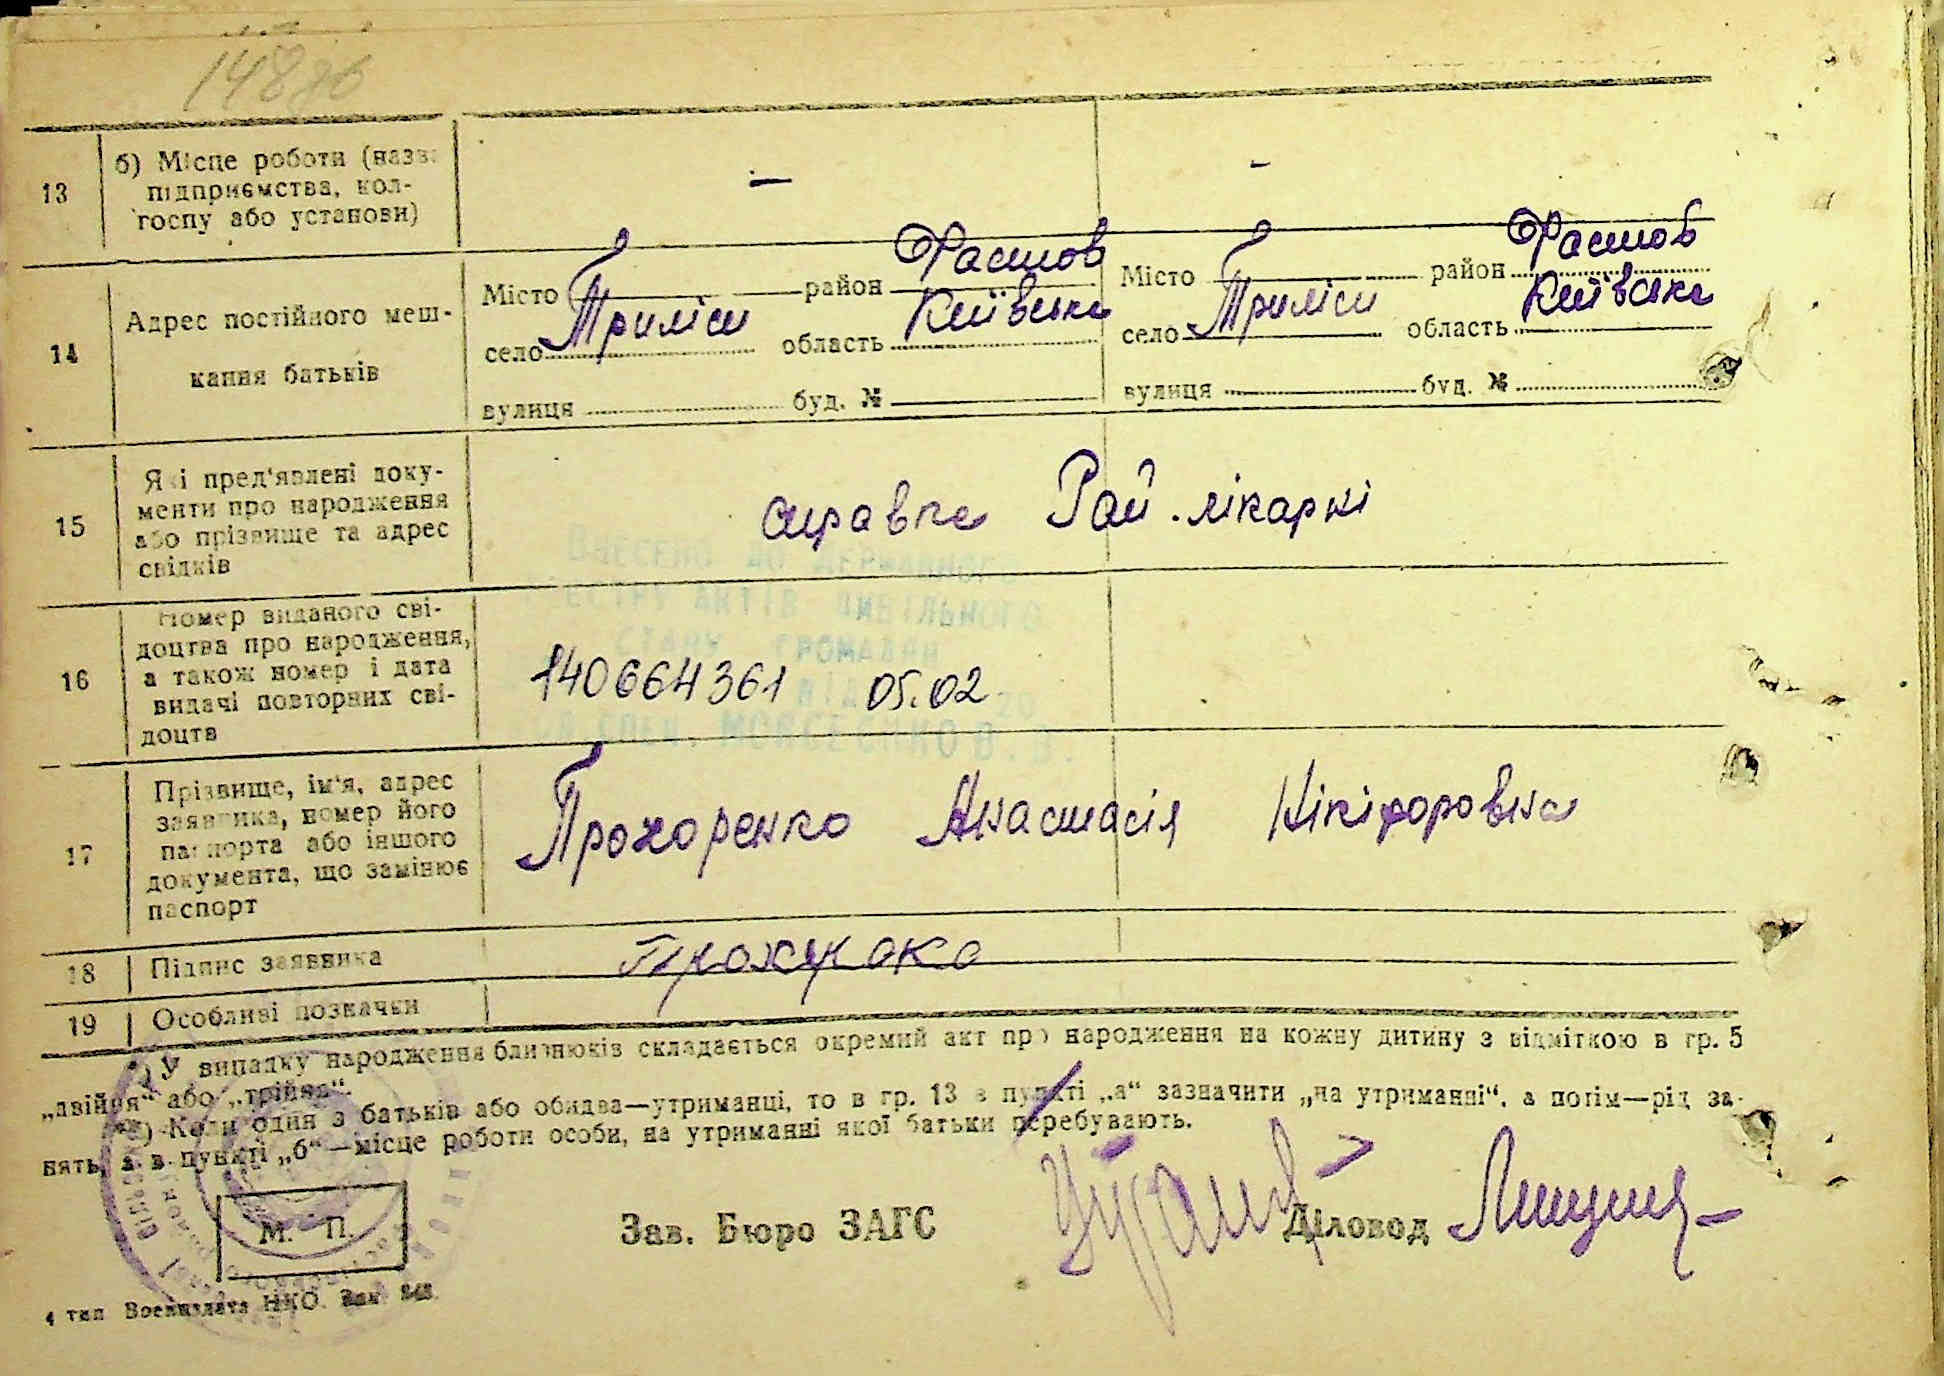 148 зв
13
б) Місце роботи (назва
підприємства, кол-
госпу або установи)
–
–
14
Адрес постійного меш-
кання батьків
Місто район Фастов
село Триліси область Київська
вулиця буд. №
Місто район Фастов
село Триліси область Київська
вулиця буд. №
15
Які пред'явлені доку-
менти про народження
або прізвище та адрес
свідків
справка Рай. лікарні
ВНЕСЕНО ДО ДЕРЖАВНОГО
РЕЄСТРУ АКТІВ ЦИВІЛЬНОГО
СТАНУ ГРОМАДЯН
ВІД 20
СПЕЦ. МОЙСЕЄНКО В.
16
Номер виданого сві-
доцтва про народження,
а також номер і дата
видачі повторних сві-
доцтв
140664361 05.02
17
Прізвище, ім'я, адрес
заявника, номер його
паспорта або іншого
документа, що замінює
паспорт
Прохоренко Анастасія Нікіфоровна
18
Підпис заявника
19
Особливі позначки
*) У випадку народження близнюків складається окремий акт про народження на кожну дитину з відміткою в гр. 5
„двійня“ або „трійня“.
**) Коли один з батьків або обидва—утриманці, то в гр. 13 в пункті „а“ зазначити „на утриманні“, а потім—рід за-
нять, а в пункті „б“—місце роботи особи, на утриманні якої батьки перебувають.
М. П.
Зав. Бюро ЗАГС
Діловод
4 тип Воениздата НКО. Зак 848